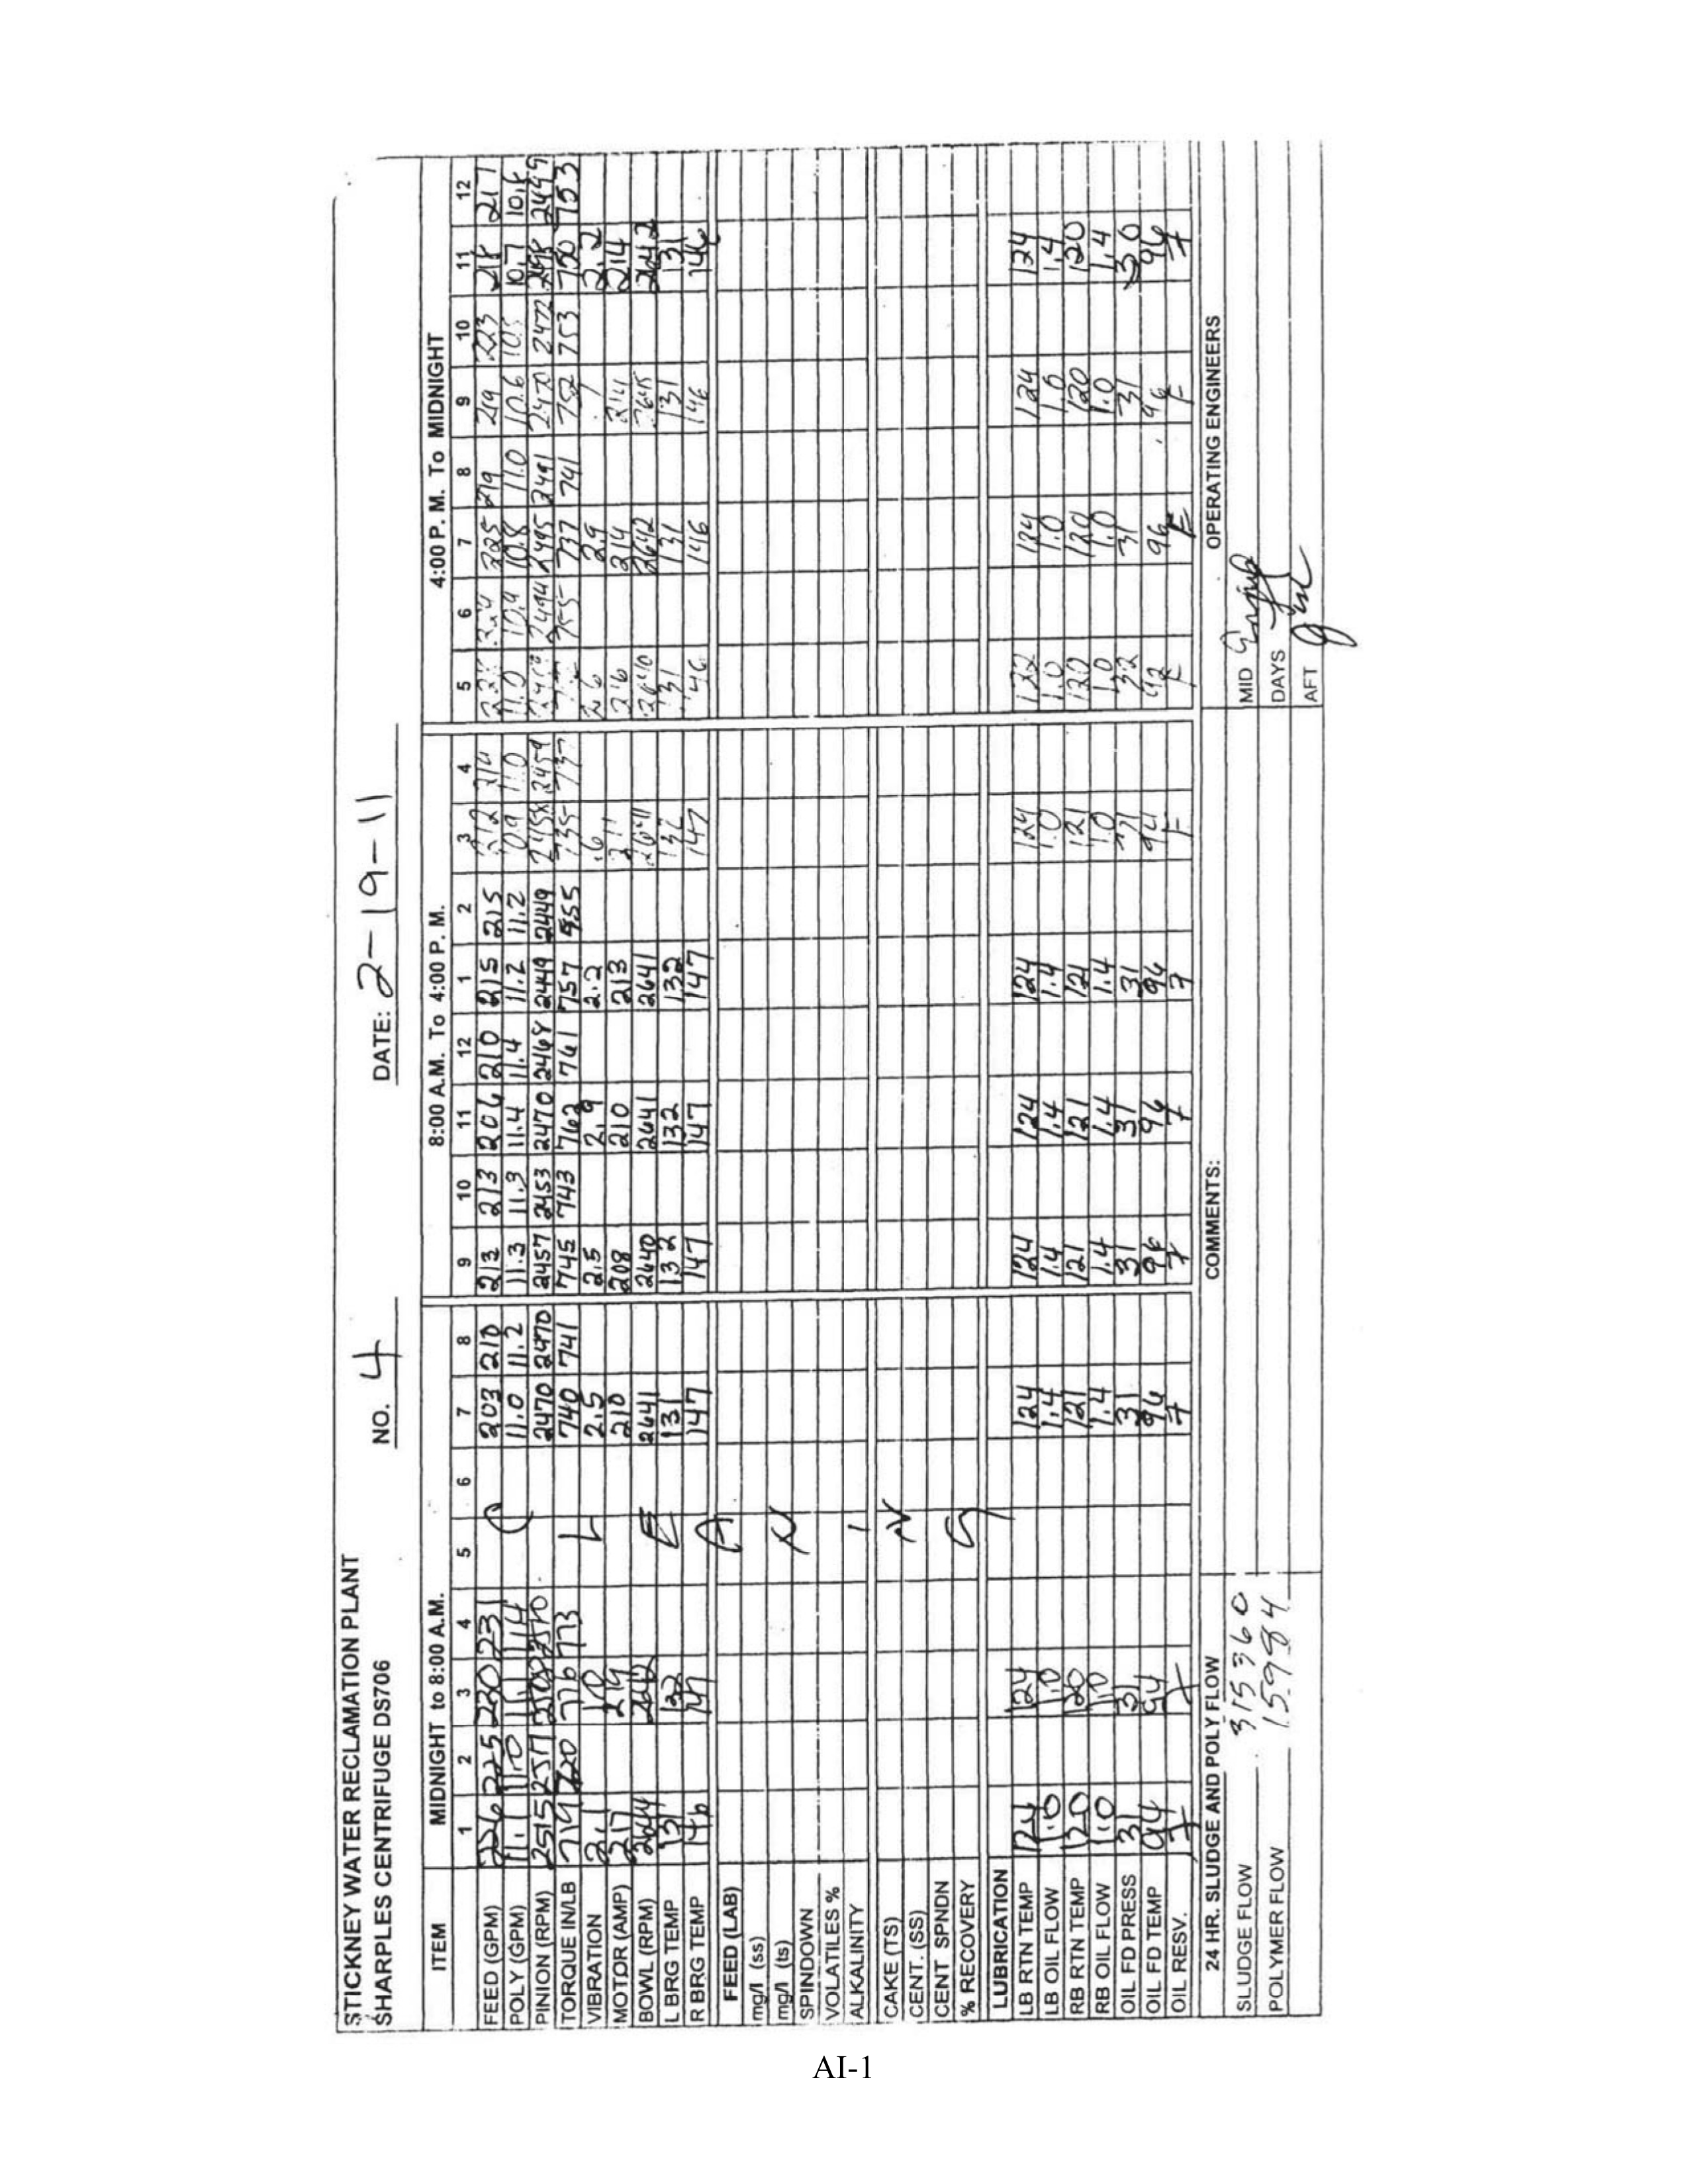 STICKNEY WATER RECLAMATION PLANT
SHARPLES CENTRIFUGE DS706 NO. 4 DATE: 2-19-11
ITEM MIDNIGHT to 8:00 A.M. 8:00 A.M. To 4:00 P. M. 4:00 P. M. To MIDNIGHT
1 2 3 4 5 6 7 8 9 10 11 12 1 2 3 4 5 6 7 8 9 10 11 12
FEED (GPM) 226 225 230 231 203 210 213 213 206 210 215 215 212 214 224 225 219 219 223 218 217
POLY (GPM) 11.1 11.0 11.1 11.4 11.0 11.2 11.3 11.3 11.4 11.4 11.2 11.2 10.9 11.0 11.0 10.9 10.8 11.0 10.6 10.5 10.7 10.8
PINION (RPM) 2515 2517 2510 2470 2470 2457 2453 2470 2468 2449 2449 2458 2459 2494 2495 2491 2470 2472 2449
TORQUE IN/LB 719 720 776 773 740 741 745 743 762 761 757 955 735 737 755 737 741 752 753 750 753
VIBRATION 2.1 2.5 2.5 2.9 2.2 .6 2.6 2.9 .7 2.2
MOTOR (AMP) 217 214 210 208 210 213 211 216 214 211 214
BOWL (RPM) 2644 2642 2641 2640 2641 2641 2641 2640 2642 2645 2642
L BRG TEMP 131 132 131 132 132 132 132 131 131 131 131
R BRG TEMP 146 147 147 147 147 147 147 146 146 146 146
FEED (LAB)
mg/l (ss)
mg/l (ts)
SPINDOWN
VOLATILES %
ALKALINITY
CAKE (TS)
CENT. (SS)
CENT SPNDN
% RECOVERY
C L E A N I N G
LUBRICATION
LB RTN TEMP 124 124 124 124 124 124 124 122 124 124 124
LB OIL FLOW 1.0 1.0 1.4 1.4 1.4 1.4 1.0 1.0 1.0 1.0 1.4
RB RTN TEMP 120 120 121 121 121 121 121 120 120 120 120
RB OIL FLOW 1.0 1.0 1.4 1.4 1.4 1.4 1.0 1.0 1.0 1.0 1.4
OIL FD PRESS 31 31 31 31 31 31 31 32 31 31 30
OIL FD TEMP 94 94 96 96 96 96 94 92 96 96 96
OIL RESV. F F F F F F F F F F F
24 HR. SLUDGE AND POLY FLOW COMMENTS: OPERATING ENGINEERS
SLUDGE FLOW 315360 MID
POLYMER FLOW 15984 DAYS
AFT
AI-1